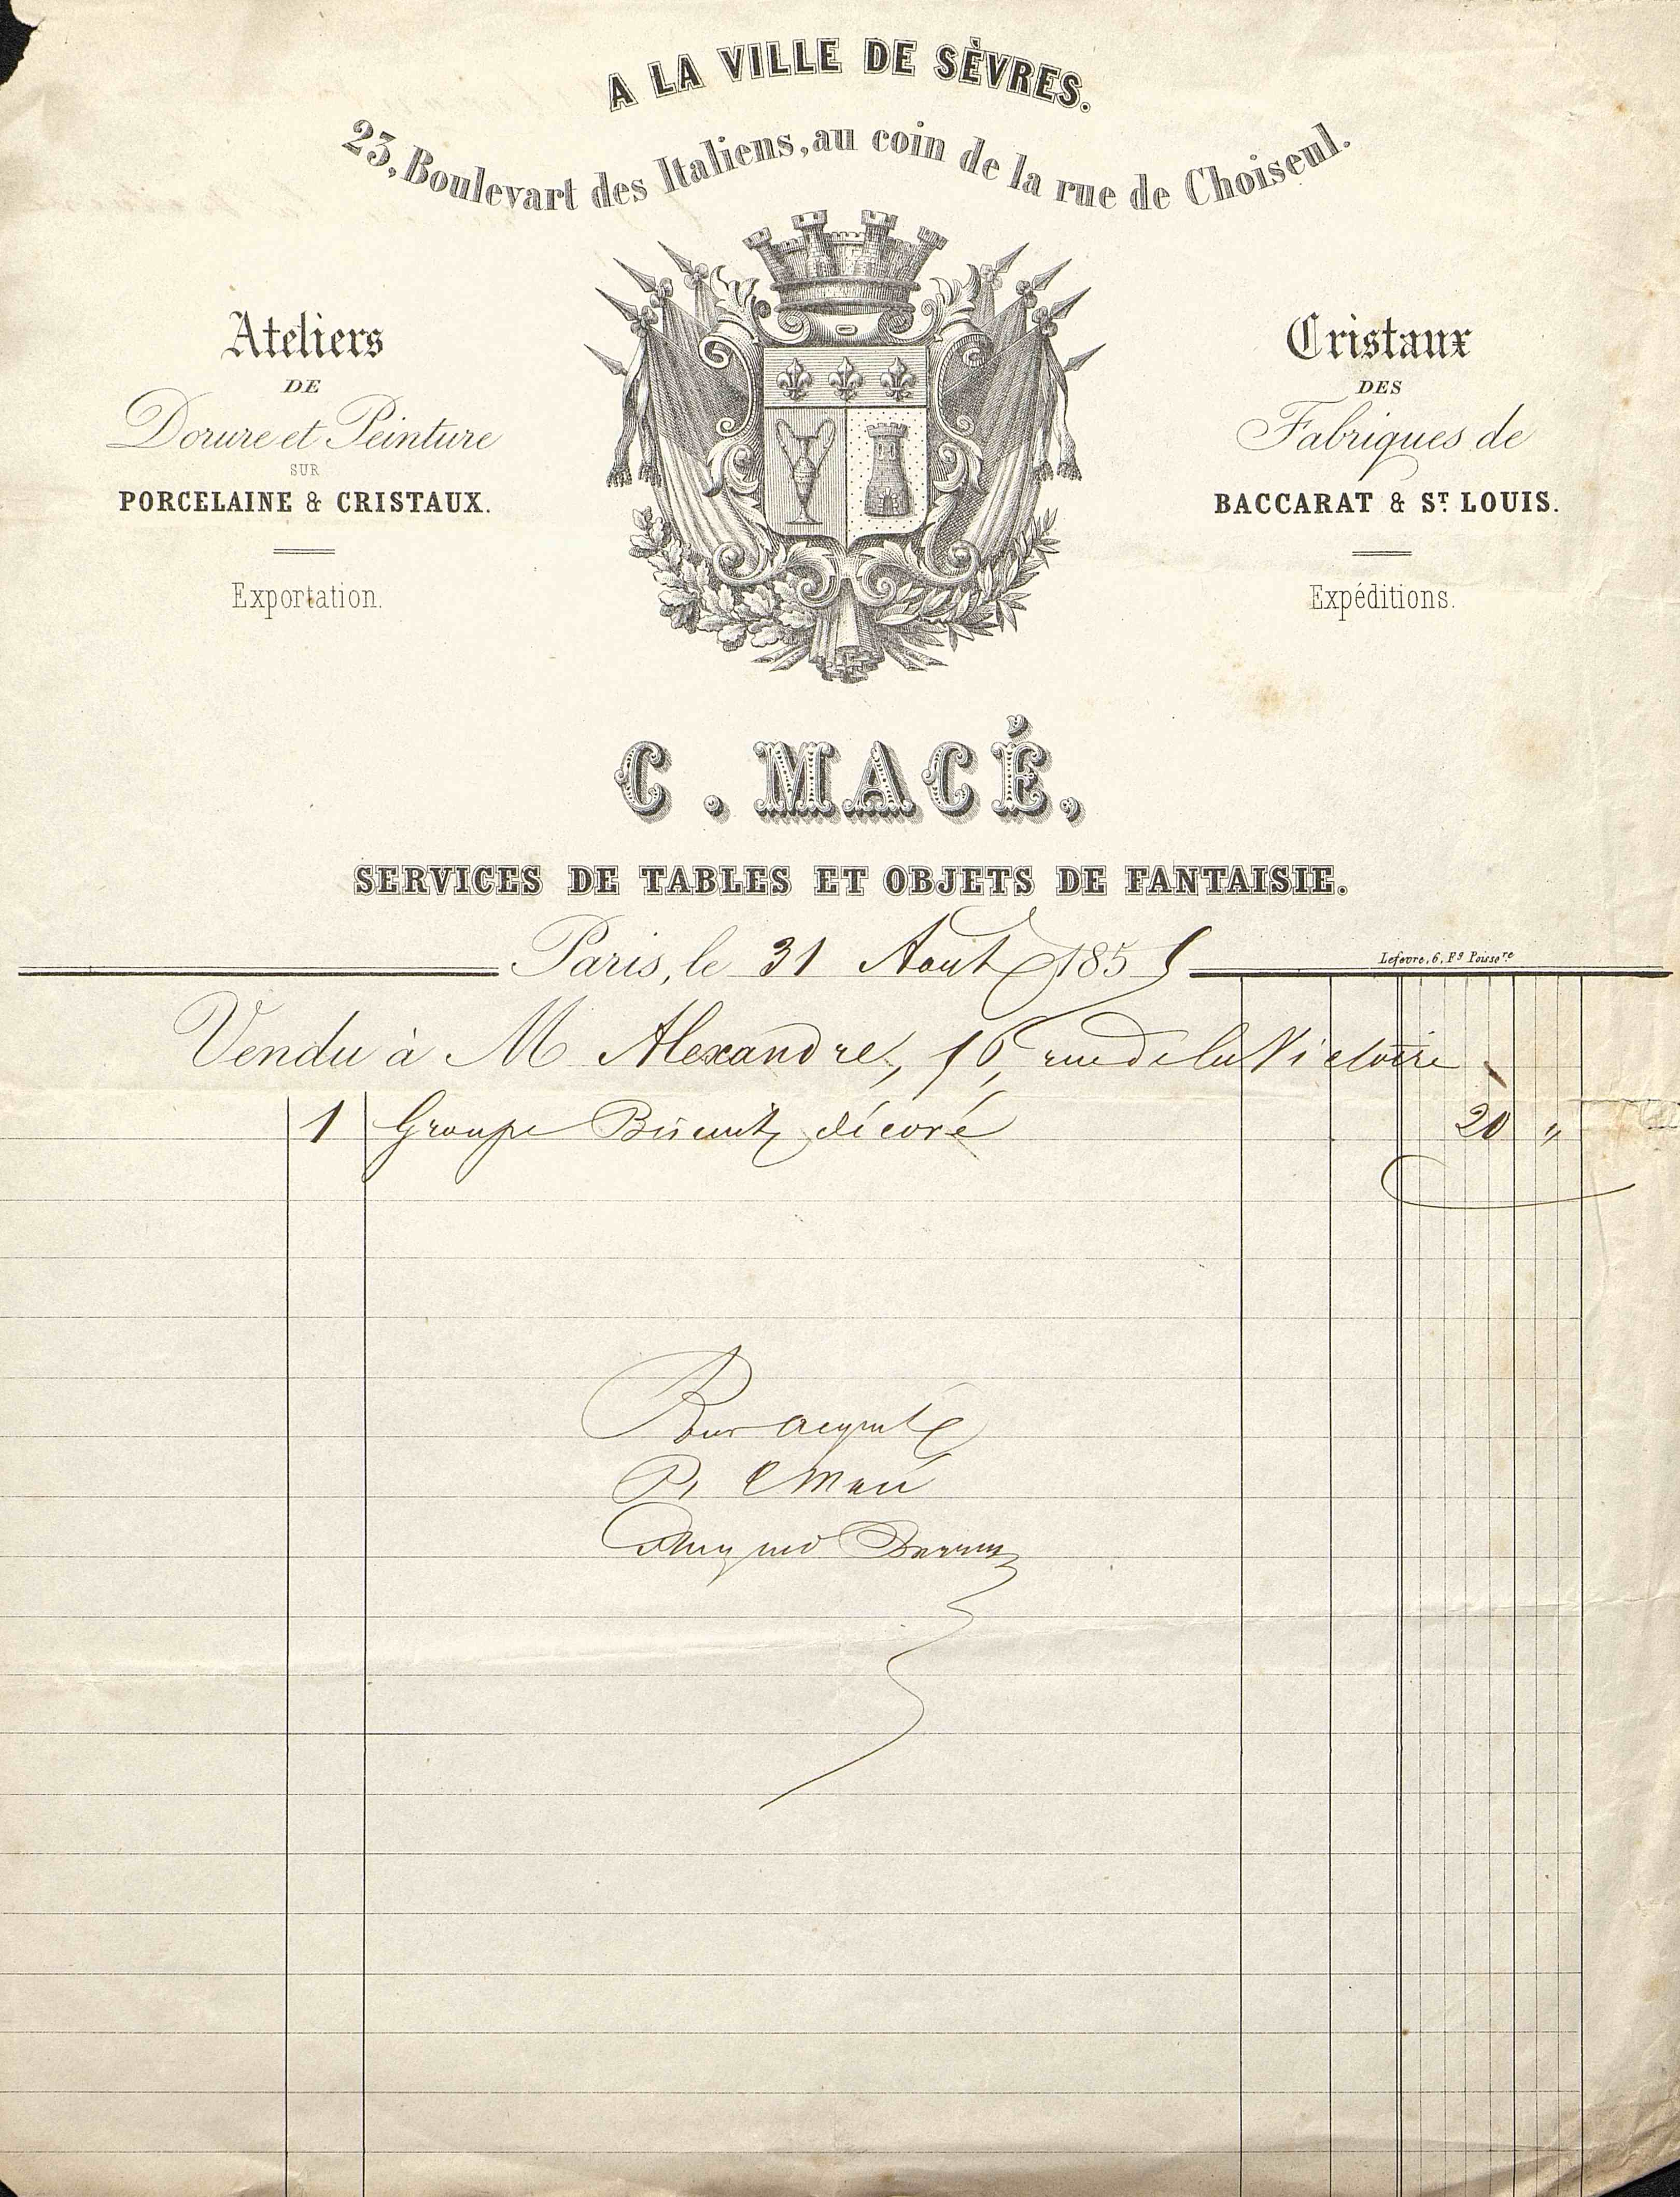 A LA VILLE DE SÈVRES.
23, Boulevart des Italiens, au coin de la rue de Choiseul.
Ateliers
DE
Dorure et Peinture
SUR
PORCELAINE & CRISTAUX.
Exportation.
Cristaux
DES
Fabriques de
BACCARAT & ST LOUIS.
Expéditions.
C. MACÉ,
SERVICES DE TABLES ET OBJETS DE FANTAISIE.
Paris, le 31 Aout 1855
Lefevre, 6, Fg Poissre
Vendu à M Alexandre, rue de la Victoire
1 Groupe Biscuit décoré 20 "
Pour acquit
P. C Macé